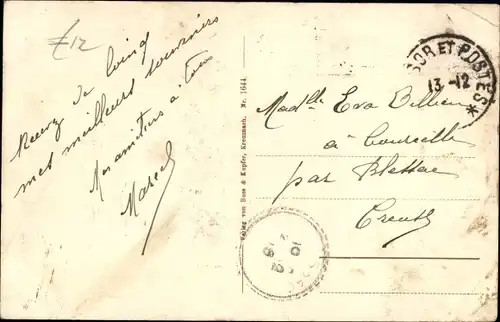 £12
Recevez de loing
mes meilleurs souvenirs
Mes amitiés à tous
Marcel
Verlag von Buss & Kupfer, Kreuznach. Nr. 1644.
OR ET POSTES *
13-12
Madlle Eva
à
par
Creuse